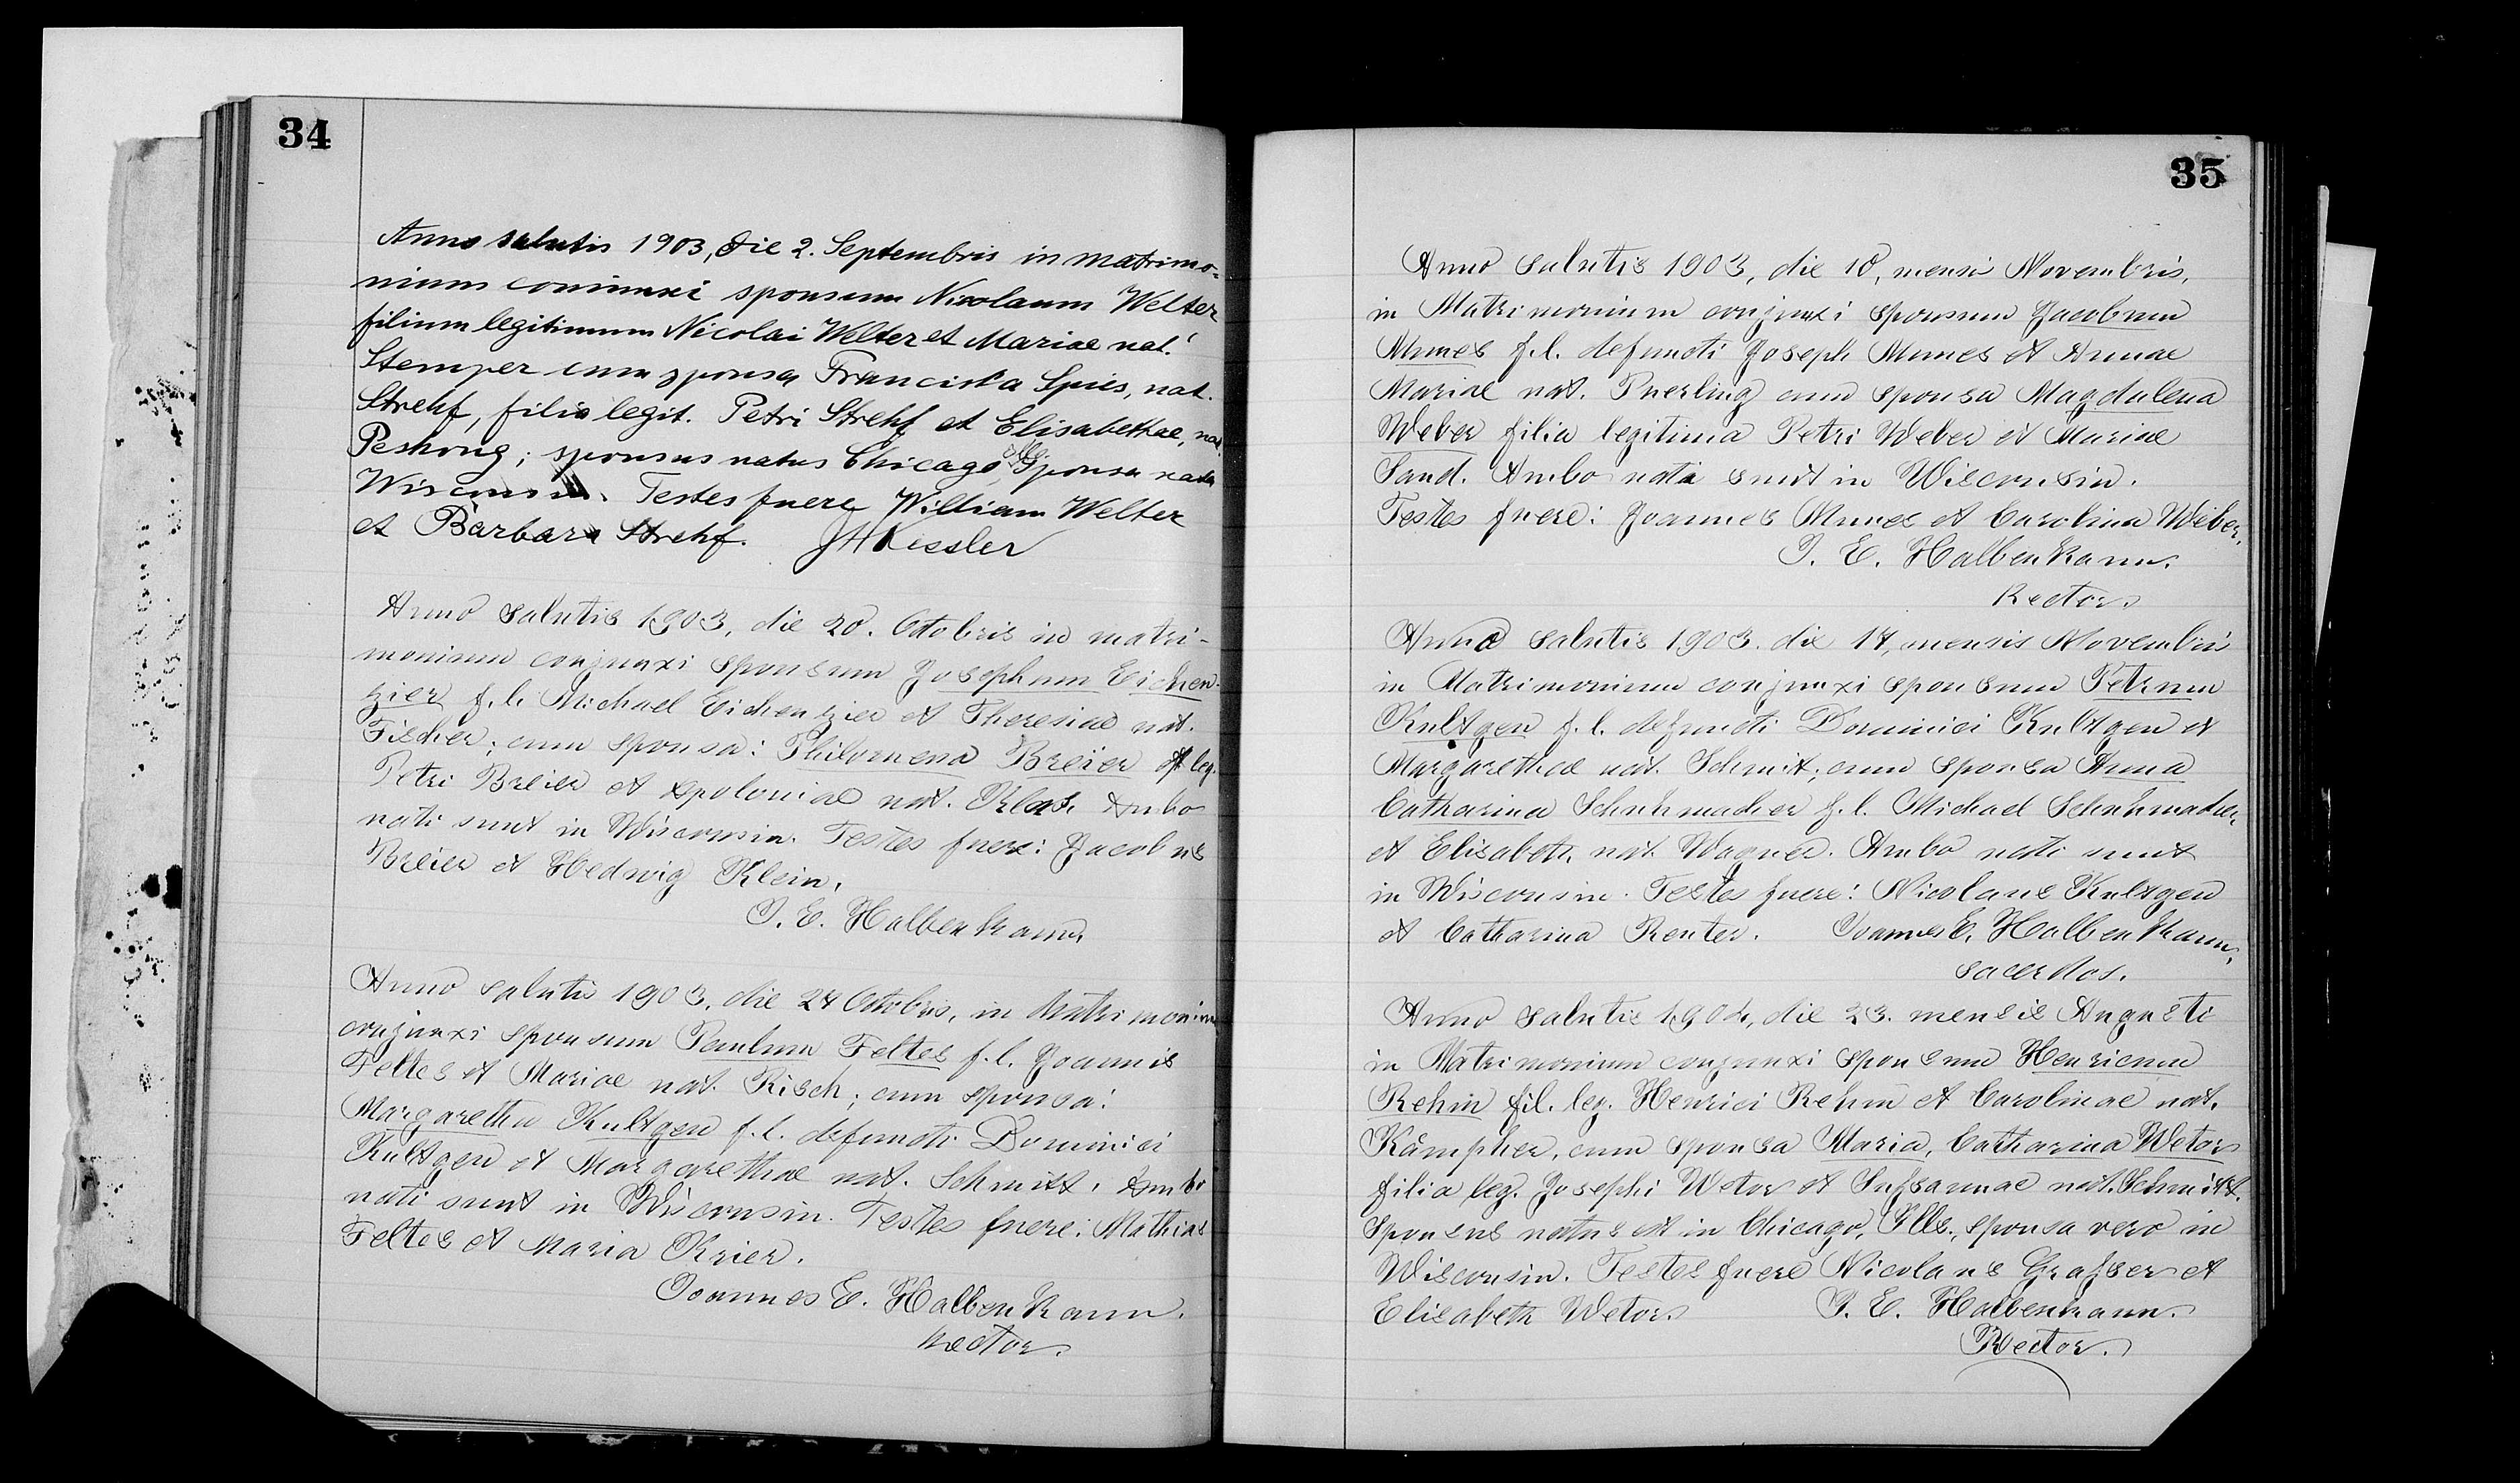 34
Anno salutis 1903, die 2. Septembris in matrimo-
nium coniunxi sponsum Nicolaum Welter
filium legitimum Nicolai Welter et Mariae nat.
Stemper cum sponsa Franciska Spies, nat.
Strehf, filia legit. Petri Strehf et Elisabethae, nat.
Peshong; sponsus natus Chicago, Ills. Sponsa nata
Wisconsin. Testes fuere William Welter
et Barbara Strehf. JH Kessler
Anno salutis 1903, die 20. Octobris in matri-
monium conjunxi sponsum Josephum Eichen-
zier f. l. Michael Eichenzier et Theresiae nat.
Fischer; cum sponsa: Philomena Breier f. leg.
Petri Breier et Apoloniae nat. Ambo
nati sunt in Wisconsin. Testes fuere: Jacobus
Breier et Hedwig Klein.
J. E. Halbenkann.
Anno salutis 1903, die 24 Octobris, in Matrimonium
conjunxi sponsum Paulum Feltes f. l. Joannis
Feltes et Mariae nat. Risch; cum sponsa:
Margaretha Kultgen f. l. defuncti Dominici
Kultgen et Margarethae nat. Schmitt. Ambo
nati sunt in Wisconsin. Testes fuere: Mathias
Feltes et Maria Krier.
Joannes E. Halbenkann.
Rector.
35
Anno salutis 1903, die 10, mensis Novembris,
in Matrimonium conjunxi sponsum Jacobum
Munes f. l. defuncti Joseph Munes et Annae
Mariae nat. Puerling cum sponsa Magdalena
Weber filia legitima Petri Weber et Mariae
Sand. Ambo nati sunt in Wisconsin.
Testes fuere: Joannes Munes et Carolina Weber.
J. E. Halbenkann.
Rector.
Anno salutis 1903. die 17, mensis Novembris
in Matrimonium conjunxi sponsum Petrum
Kultgen f. l. defuncti Dominici Kultgen et
Margarethae nat. Schmit; cum sponsa Anna
Catharina Schuhmacher f. l. Michael Schuhmacher,
et Elisabeth, nat. Wagner. Ambo nati sunt
in Wisconsin. Testes fuere: Nicolaus Kultgen
et Catharina Reuter. Joannes E. Halbenkann,
sacerdos.
Anno salutis 1904, die 23. mensis Augusti
in Matrimonium conjunxi sponsum Henricum
Rehm fil. leg. Henrici Rehm et Carolinae nat.
Kämpher, cum sponsa Maria, Catharina Wetor
filia leg. Josephi Wetor et Susannae nat. Schmitt.
Sponsus natus est in Chicago, Ills., sponsa vero in
Wisconsin. Testes fuere Nicolaus Grasser et
Elisabeth Wetor. J. E. Halbenkann.
Rector.